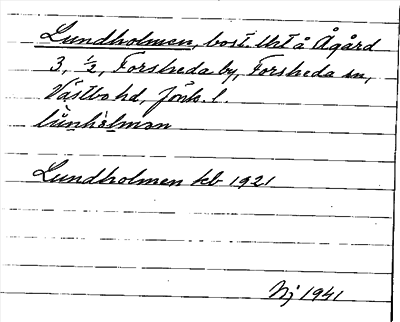 Lundholmen, bost. lht å Ågård
3, ½, Forsheda by, Forsheda sn,
Västbo hd, Jönk. l.
lùnhòlmən
Lundholmen kb 1921
Nj 1941